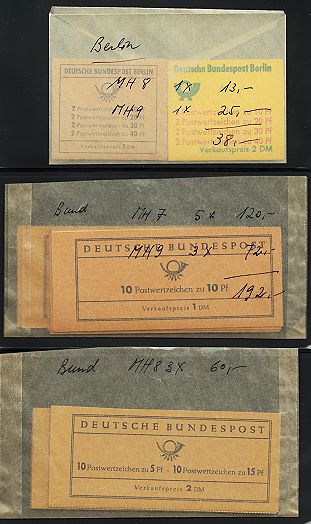 Berlin
DEUTSCHE BUNDESPOST BERLIN
MH 8
MH9
2 Postwertzeichen zu 30 Pf
2 Postwertzeichen zu 40 Pf
Verkaufspreis 2 DM
Deutsche Bundespost Berlin
1x 13,-
1x 25,-
2 Postwertzeichen zu 20 Pf
2 Postwertzeichen zu 30 Pf
38,-
Verkaufspreis 2 DM
Bund MH 7 5x 120,-
DEUTSCHE BUNDESPOST
MH9 3x 72,-
10 Postwertzeichen zu 10 Pf
192,-
Verkaufspreis 1 DM
Bund MH8 3X 60,-
DEUTSCHE BUNDESPOST
10 Postwertzeichen zu 5 Pf · 10 Postwertzeichen zu 15 Pf
Verkaufspreis 2 DM